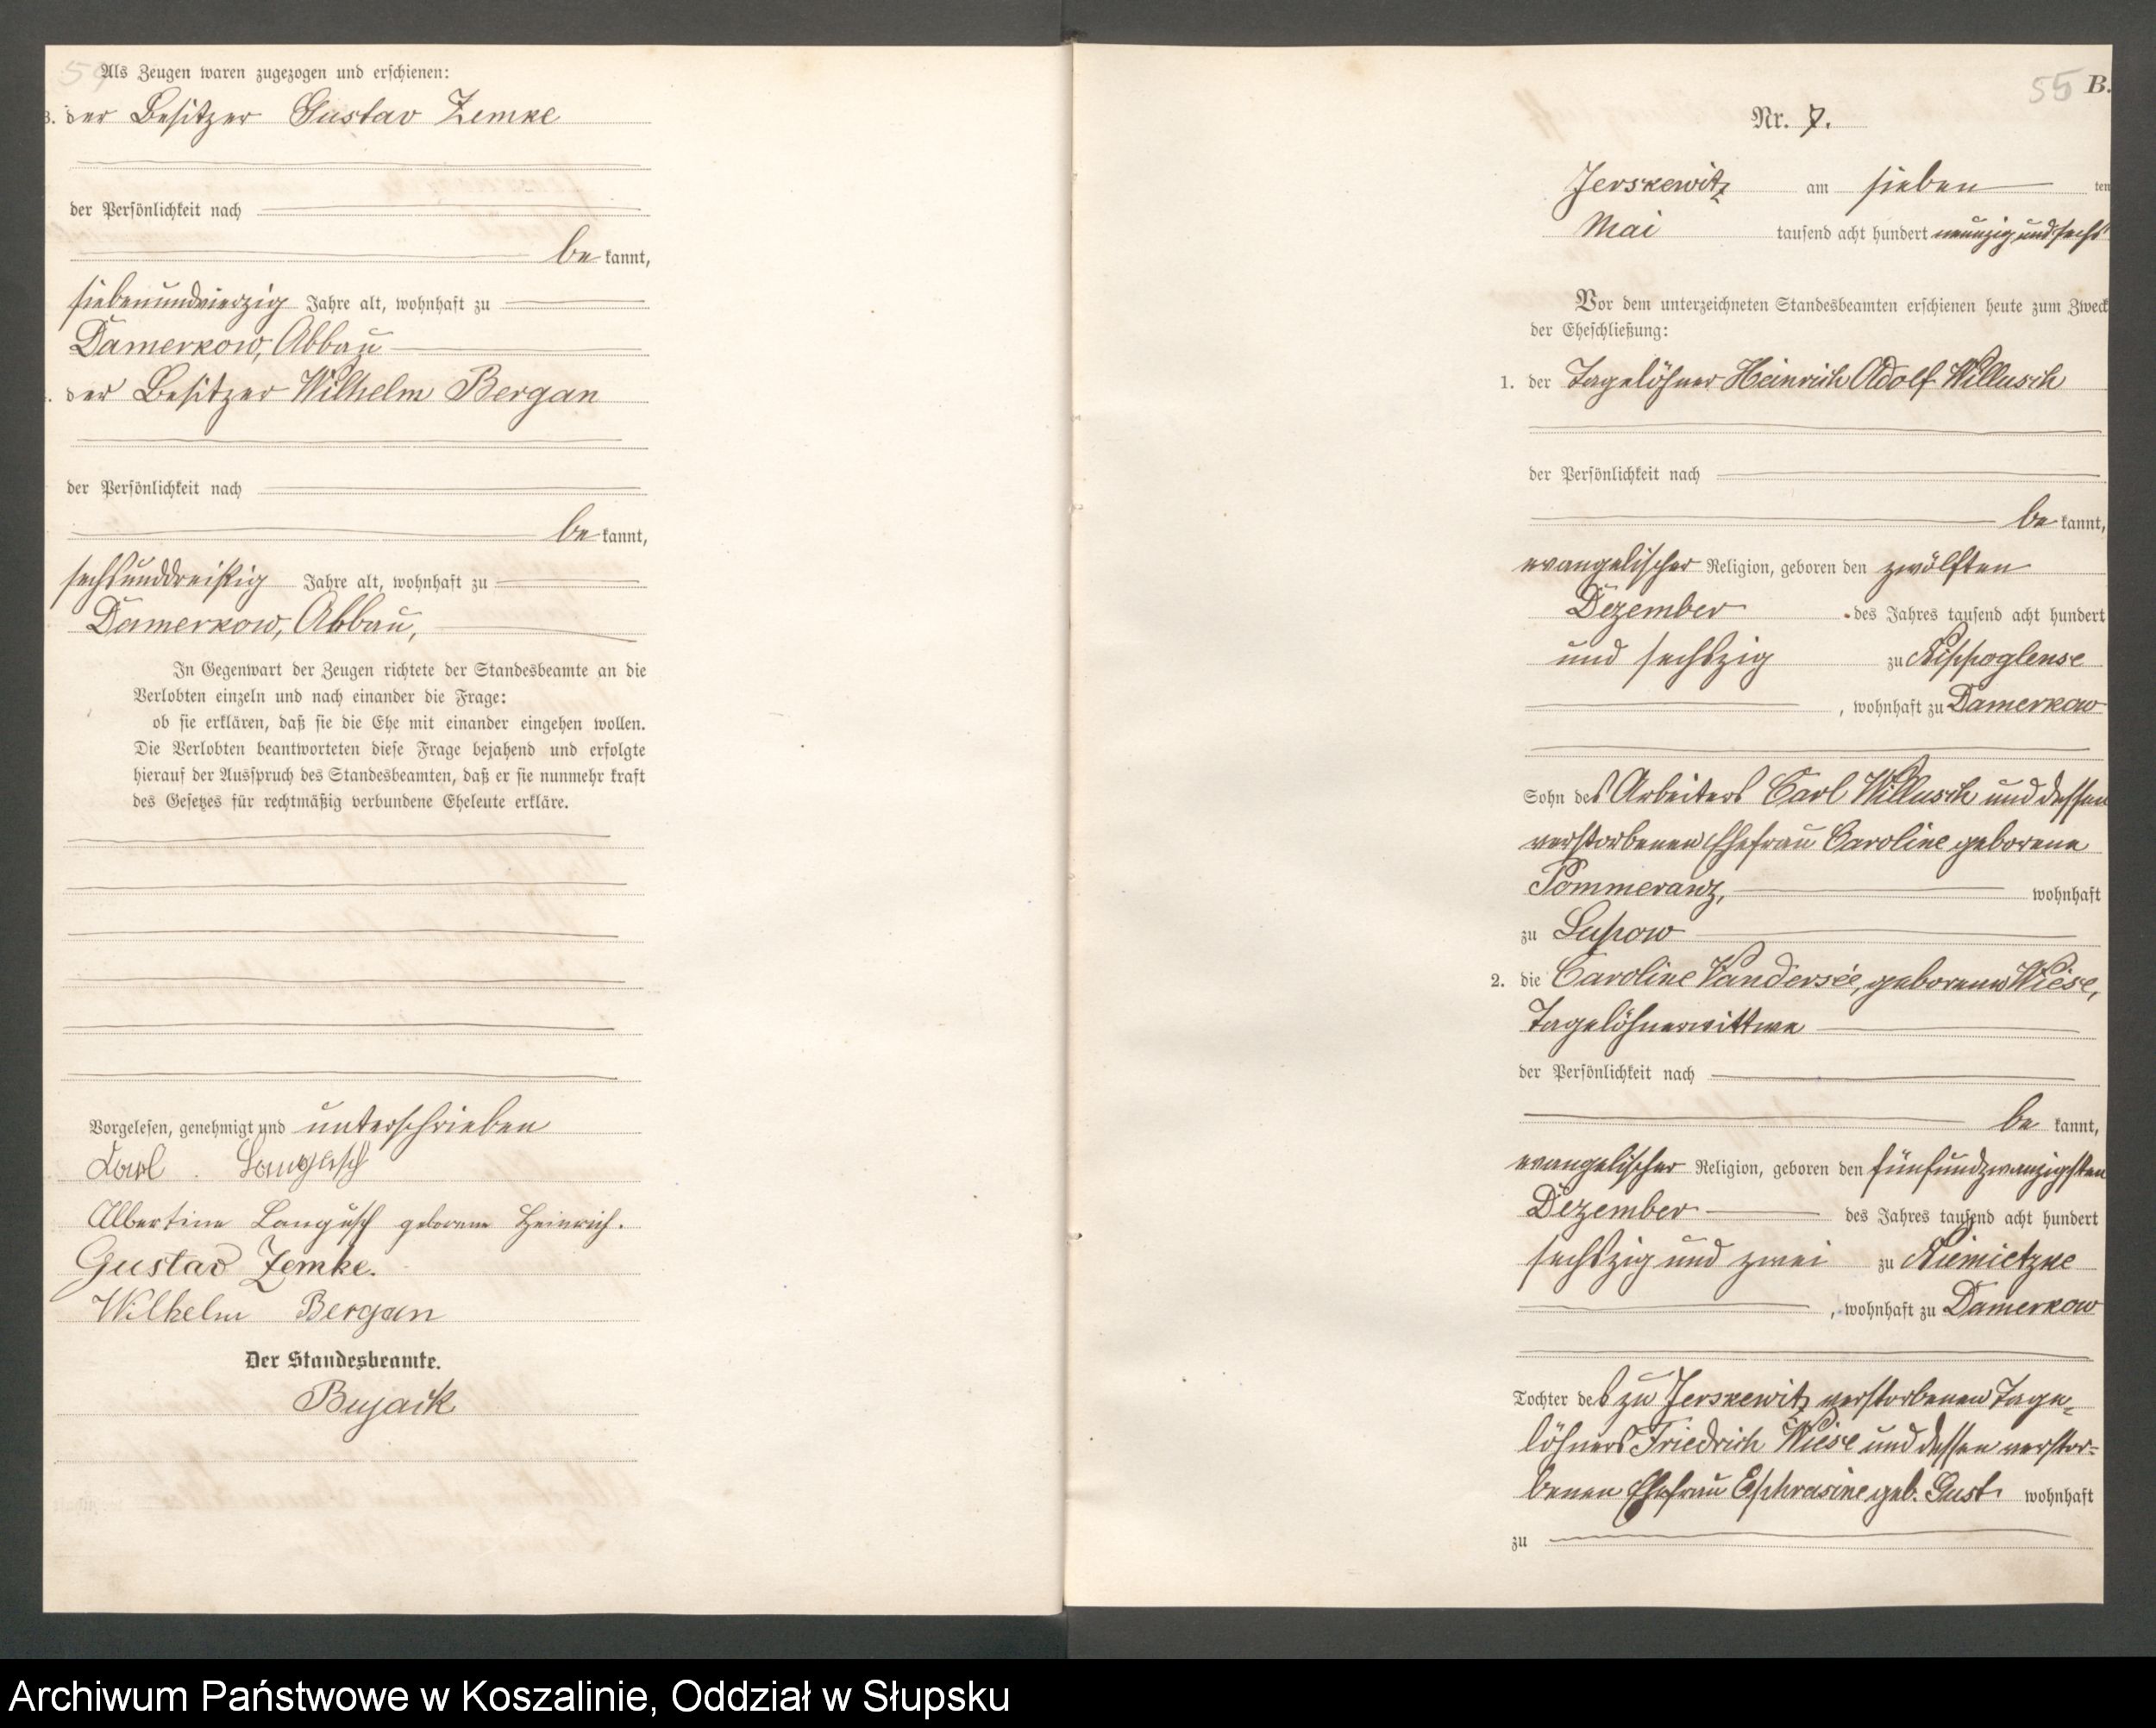 54
Als Zeugen waren zugezogen und erschienen:
3. der Besitzer Gustav Zemke
der Persönlichkeit nach
be kannt,
siebenundvierzig Jahre alt, wohnhaft zu
Damerkow, Abbau
der Besitzer Wilhelm Bergan
der Persönlichkeit nach
be kannt,
sechsunddreißig Jahre alt, wohnhaft zu
Damerkow, Abbau,
In Gegenwart der Zeugen richtete der Standesbeamte an die
Verlobten einzeln und nach einander die Frage:
ob sie erklären, daß sie die Ehe mit einander eingehen wollen.
Die Verlobten beantworteten diese Frage bejahend und erfolgte
hierauf der Ausspruch des Standesbeamten, daß er sie nunmehr kraft
des Gesetzes für rechtmäßig verbundene Eheleute erkläre.
Vorgelesen, genehmigt und unterschrieben
Karl Langusch
Albertine Langusch geborene Heinrich.
Gustav Zemke.
Wilhelm Bergan
Der Standesbeamte.
Bujack
55 B.
Nr. 7.
Jerskewitz am sieben ten
Mai tausend acht hundert neunzig und sechs
Vor dem unterzeichneten Standesbeamten erschienen heute zum Zweck
der Eheschließung:
1. der Tagelöhner Heinrich Adolf Willusch
der Persönlichkeit nach
be kannt,
evangelischer Religion, geboren den zwölften
Dezember des Jahres tausend acht hundert
und sechszig zu Nippoglense
, wohnhaft zu Damerkow
Sohn des Arbeiters Carl Willusch und dessen
verstorbenen Ehefrau Caroline geborene
Pommeranz, wohnhaft
zu Lupow
2. die Caroline Vandersée, geborene Wiese,
Tagelöhnerwittwe
der Persönlichkeit nach
be kannt,
evangelischer Religion, geboren den fünfundzwanzigsten
Dezember des Jahres tausend acht hundert
sechszig und zwei zu Niemietzke
, wohnhaft zu Damerkow
Tochter des zu Jerskewitz verstorbenen Tage-
löhners Friedrich Wiese und dessen verstor-
benen Ehefrau Ephrasine geb. Gust wohnhaft
zu
Archiwum Państwowe w Koszalinie, Oddział w Słupsku